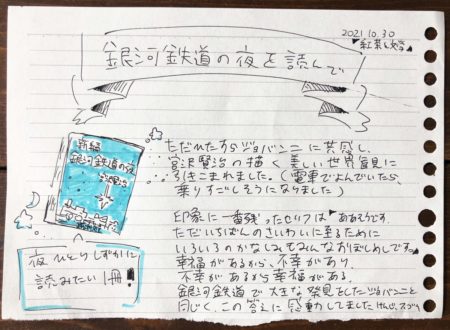 2021.10.30
紅茶と文学
銀河鉄道の夜を読んで
新編
銀河鉄道の夜
宮沢賢治
ただひたすらジョバンニに共感し、
宮沢賢治の描く美しい世界観に
引きこまれました。(電車でよんでいたら、
乗りすごしそうになりました)
印象に一番残ったセリフは"ああそうです。
ただいちばんのさいわいに至るために
いろいろのかなしみもみんなおぼしめしです。"
幸福があるから、不幸があり、
不幸があるから幸福がある。
銀河鉄道で大きな発見をしたジョバンニと
同じく、この答えに感動しました
夜ひとりしずかに
読みたい1冊!